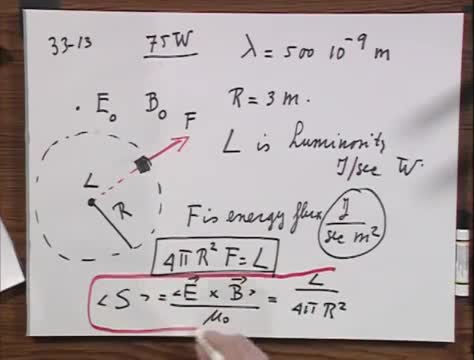 33-13 75W λ = 500 10⁻⁹ m
. E₀ B₀ R = 3 m.
F
L is Luminosity
J/sec W
L
R
F is energy flux J/sec m²
4πR² F = L
<S> = <E⃗ × B⃗>/μ₀ = L/4πR²